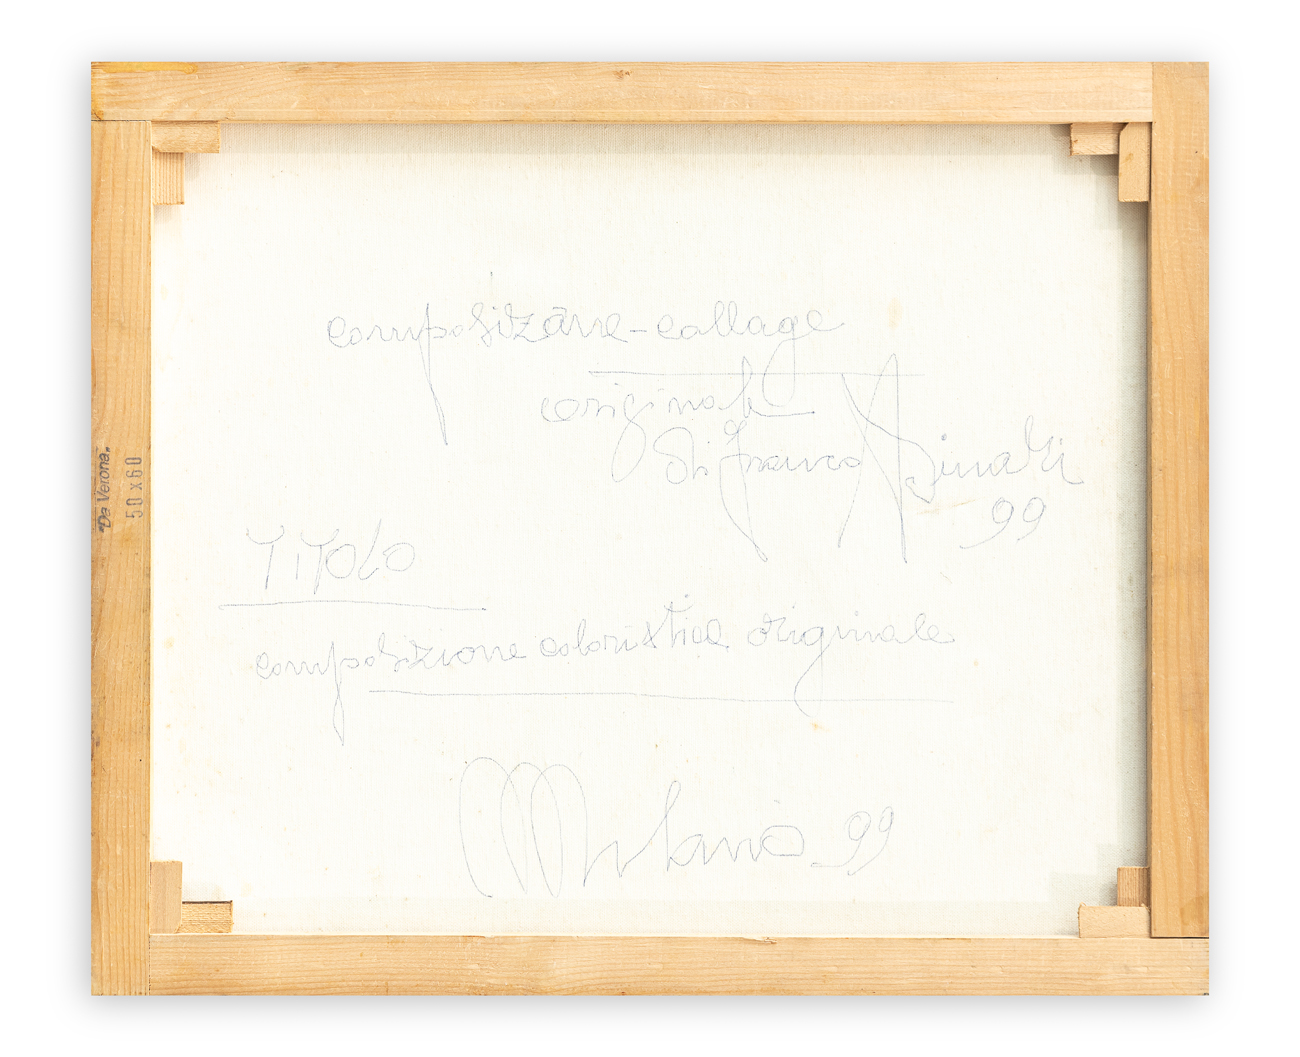 composizione-collage
originale
di Franco Asinari
99
TITOLO
composizione coloristica originale
Milano 99
"Da Verona"
50 x 60